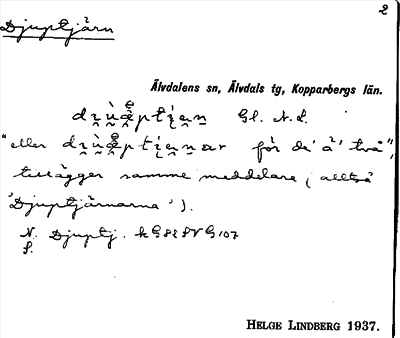 2
Djuptjärn
Älvdalens sn, Älvdals tg, Kopparbergs län.
Gl. N. L.
"eller för de' ä' två",
tillägger samme meddelare (alltså
'Djuptjärnarna').
N. Djuptj. k G82 SV G107
S.
HELGE LINDBERG 1937.